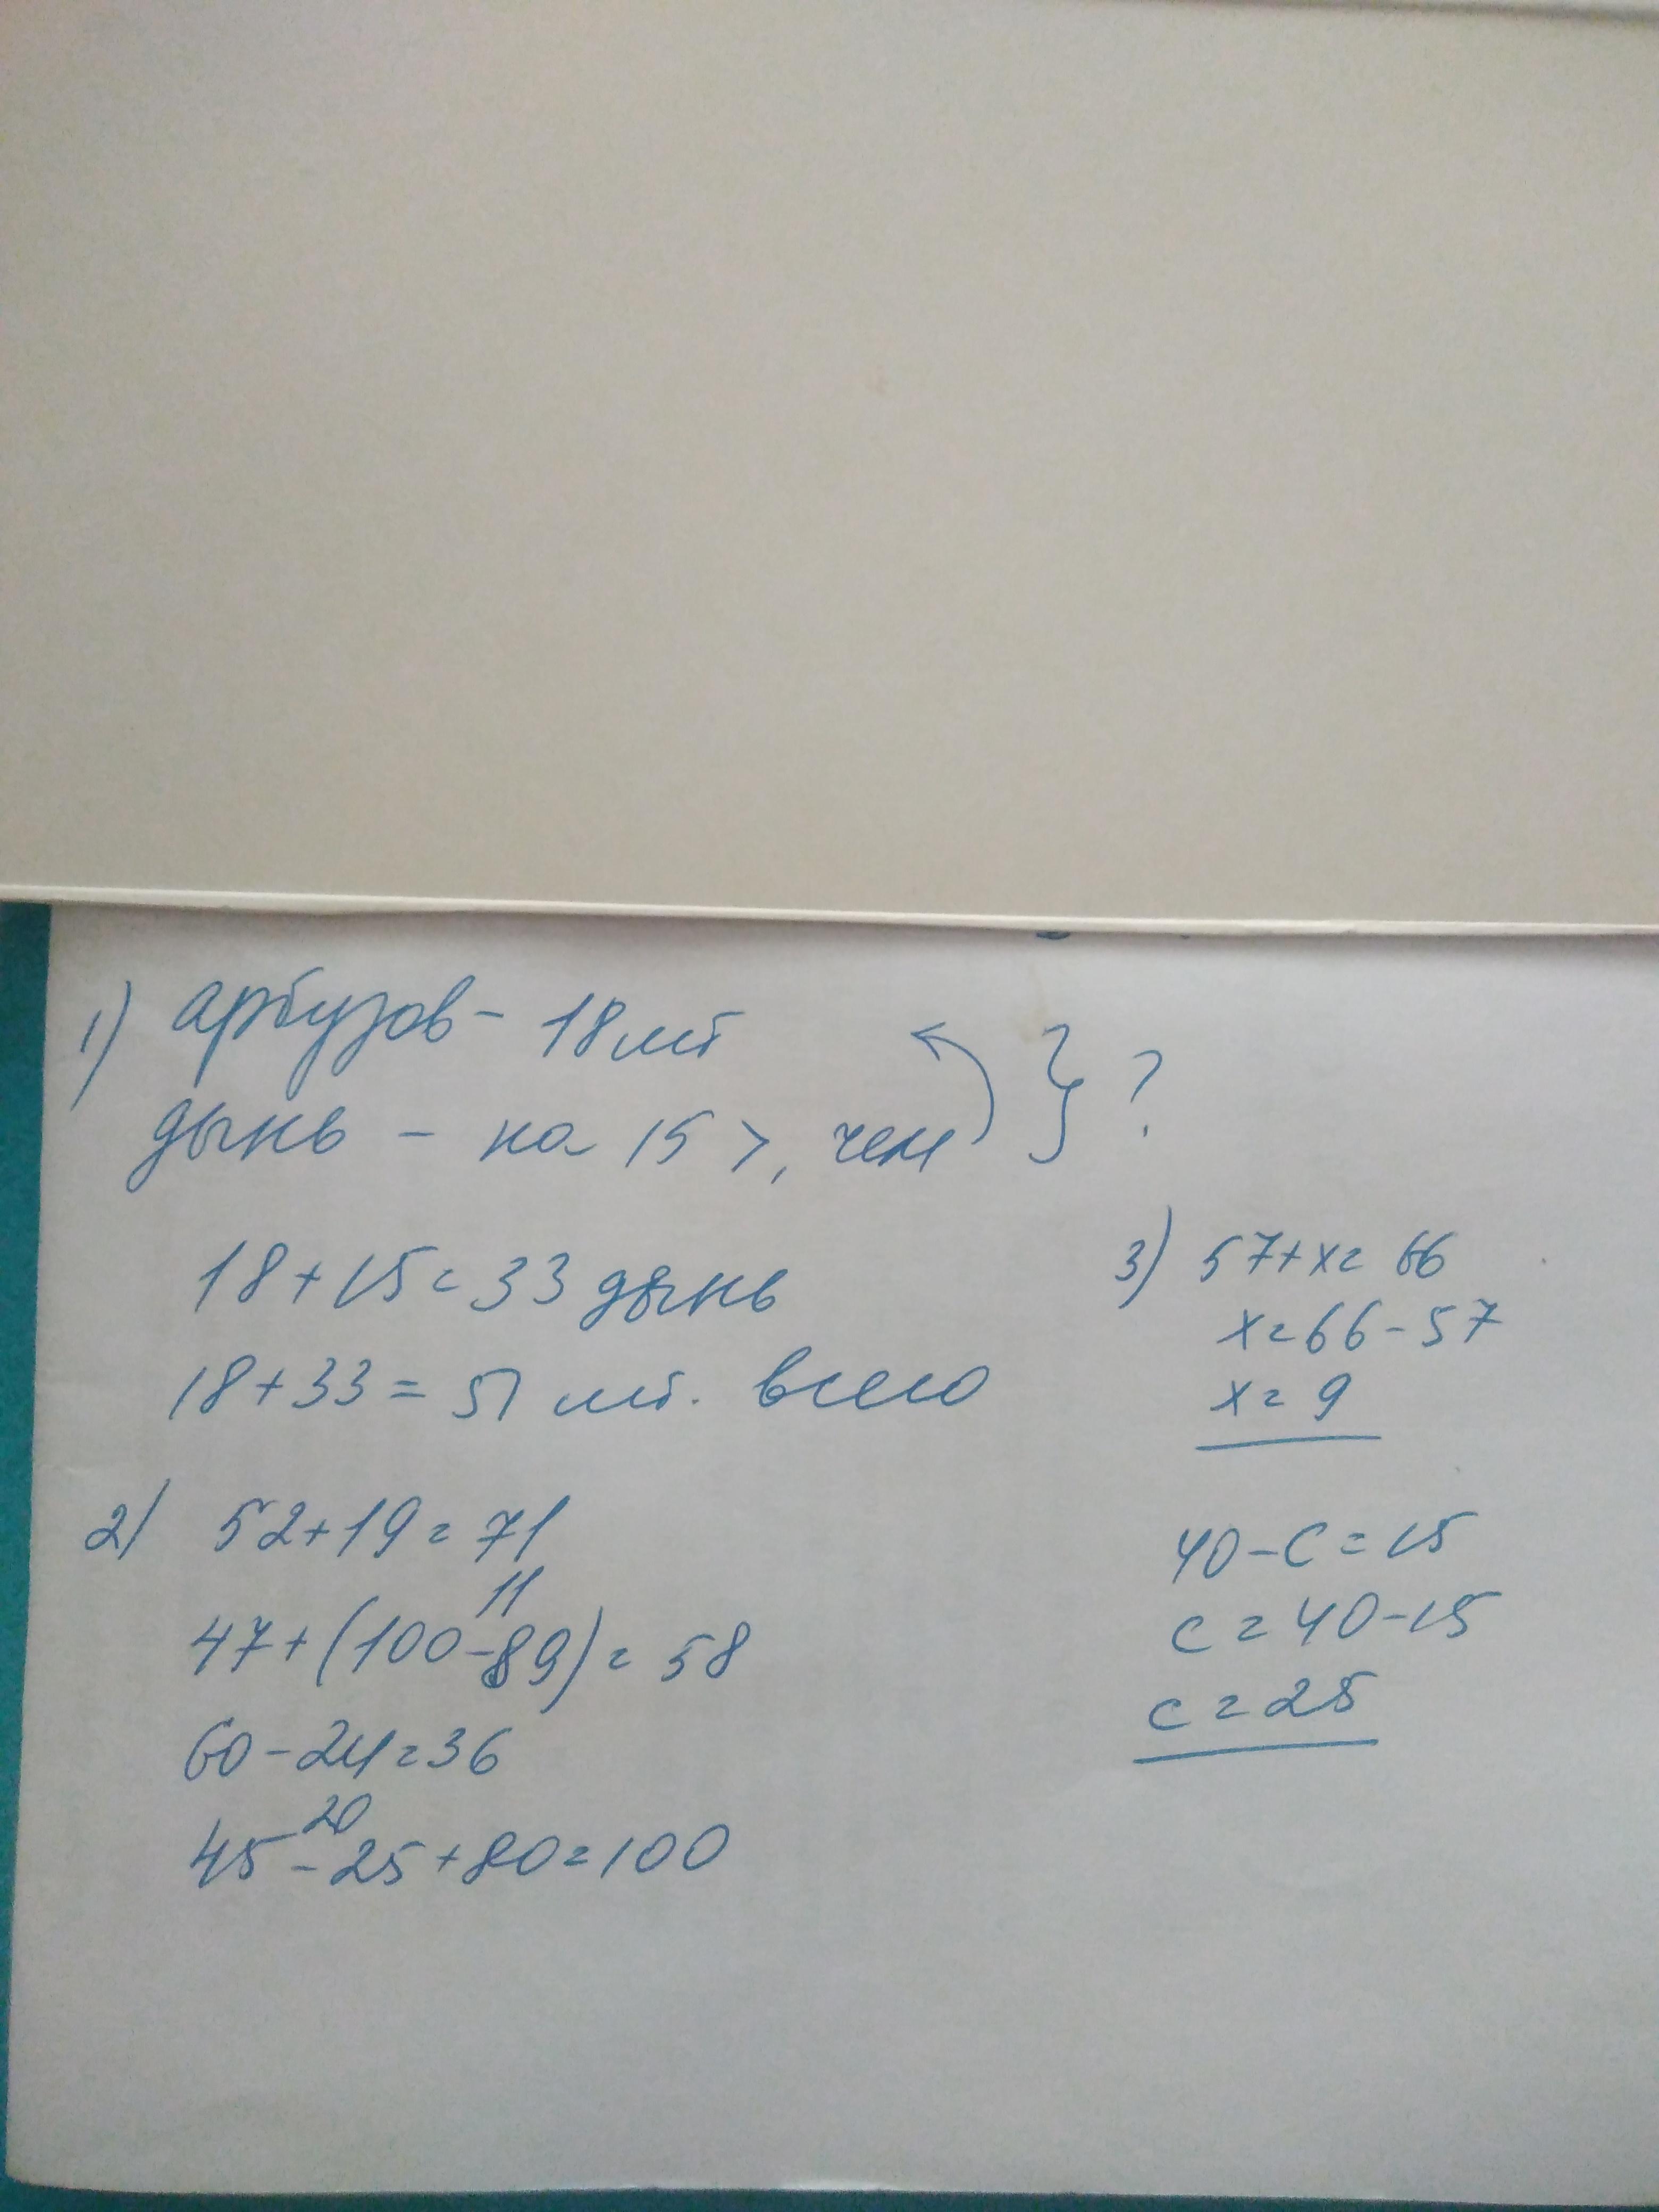 1) арбузов - 18 шт
дынь - на 15 >, чем } ?
18+15=33 дынь
18+33=51 шт. всего
2) 52+19=71
11
47+(100-89)=58
60-24=36
20
45-25+80=100
3) 57+x=66
x=66-57
x=9
40-c=15
c=40-15
c=25